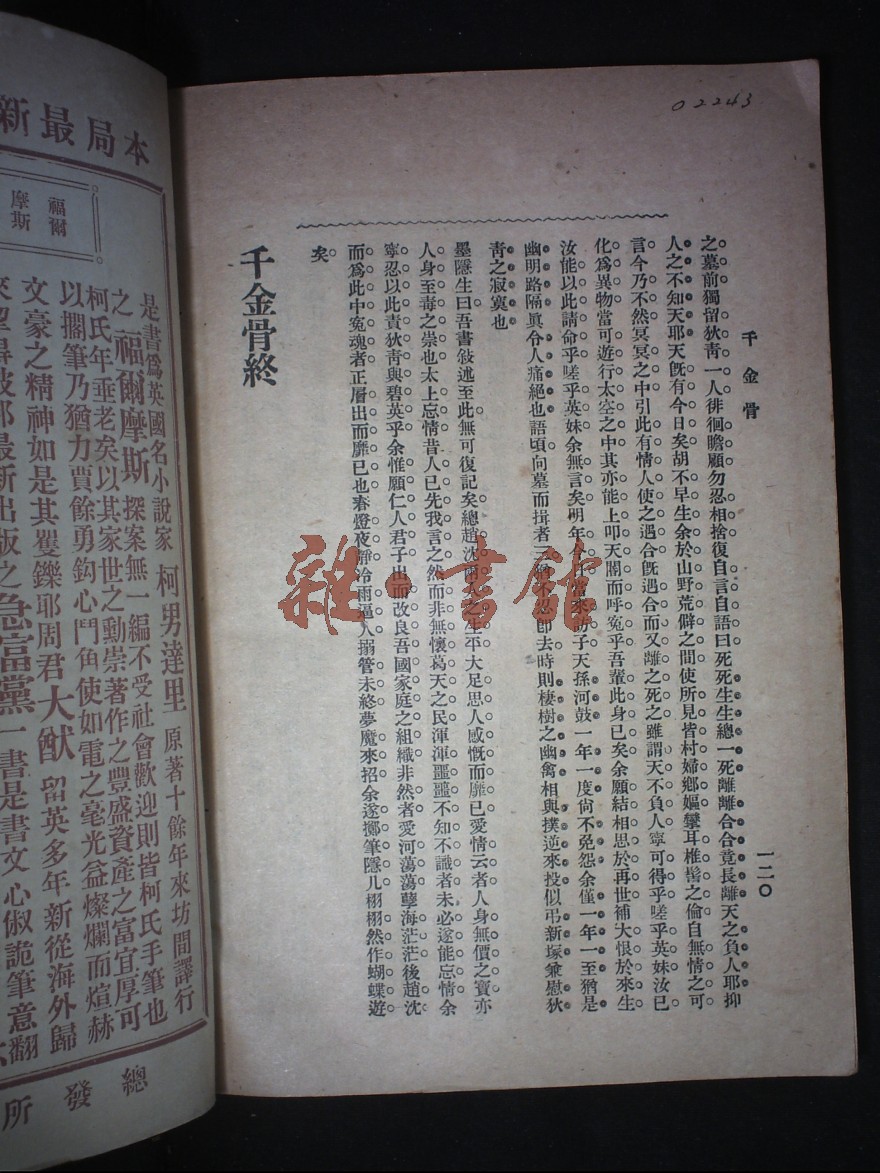 02243
千金骨
一二〇
之墓前獨留狄靑一人徘徊瞻顧勿忍相捨復自言自語曰死死生生總一死離離合合竟長離天之負人耶抑
人之不知天耶天旣有今日矣胡不早生余於山野荒僻之間使所見皆村婦鄉嫗攣耳椎髻之倫自無情之可
言今乃不然冥冥之中引此有情人使之遇合旣遇合而又離之死之雖謂天不負人寧可得乎嗟乎英妹汝已
化爲異物當可遊行太空之中其亦能上叩天閽而呼寃乎吾輩此身已矣余願結相思於再世補大恨於來生
汝能以此請命乎嗟乎英妹余無言矣明年今日當來訪子天孫河鼓一年一度尙不免怨余僅一年一至猶是
幽明路隔眞令人痛絕也語頃向墓而揖者三猶不忍卽去時則棲樹之幽禽相與撲逆來投似弔新塚兼慰狄
靑之寂寞也
墨隱生曰吾書敍述至此無可復記矣總趙沈兩人之生平大足思人感慨而靡已愛情云者人身無價之寶亦
人身至毒之祟也太上忘情昔人已先我言之然而非無懷葛天之民渾渾噩噩不知不識者未必遂能忘情余
寧忍以此責狄靑與碧英乎余惟願仁人君子出而改良吾國家庭之組織非然者愛河蕩蕩孽海茫茫後趙沈
而爲此中寃魂者正層出而靡已也春燈夜靜冷雨逼人搦管未終夢魔來招余遂擲筆隱几栩栩然作蝴蝶遊
矣
千金骨終
雜·書館
本局最新
福爾
摩斯
是書爲英國名小說家柯男達里原著十餘年來坊間譯行
之福爾摩斯探案無一編不受社會歡迎則皆柯氏手筆也
柯氏年垂老矣以其家世之勳崇著作之豐盛資產之富宜厚可
以擱筆乃猶力賈餘勇鈎心鬥角使如電之毫光益燦爛而煊赫
文豪之精神如是其矍鑠耶周君大猷留英多年新從海外歸
來
最新出版之急富黨一書是書文心俶詭筆意翻
總發所